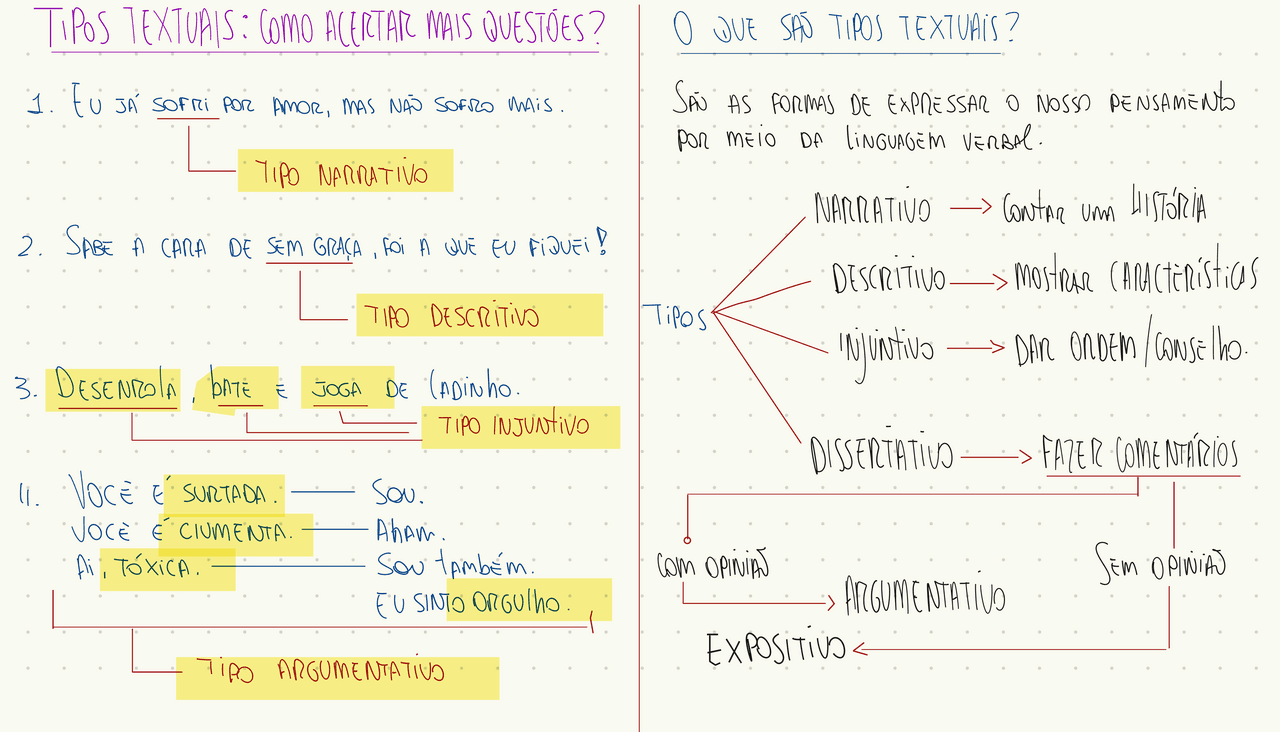 TIPOS TEXTUAIS: COMO ACERTAR MAIS QUESTÕES?
1. EU JÁ SOFRI POR AMOR, MAS NÃO SOFRO MAIS.
TIPO NARRATIVO
2. SABE A CARA DE SEM GRAÇA, FOI A QUE EU FIQUEI!
TIPO DESCRITIVO
3. DESENROLA, BATE E JOGA DE LADINHO.
TIPO INJUNTIVO
4. VOCÊ É SURTADA. SOU.
VOCÊ É CIUMENTA. AHAM.
AI, TÓXICA. SOU TAMBÉM.
EU SINTO ORGULHO.
TIPO ARGUMENTATIVO
O QUE SÃO TIPOS TEXTUAIS?
SÃO AS FORMAS DE EXPRESSAR O NOSSO PENSAMENTO
POR MEIO DA LINGUAGEM VERBAL.
TIPOS
NARRATIVO → CONTAR UMA HISTÓRIA
DESCRITIVO → MOSTRAR CARACTERÍSTICAS
INJUNTIVO → DAR ORDEM/CONSELHO.
DISSERTATIVO → FAZER COMENTÁRIOS
COM OPINIÃO
SEM OPINIÃO
ARGUMENTATIVO
EXPOSITIVO